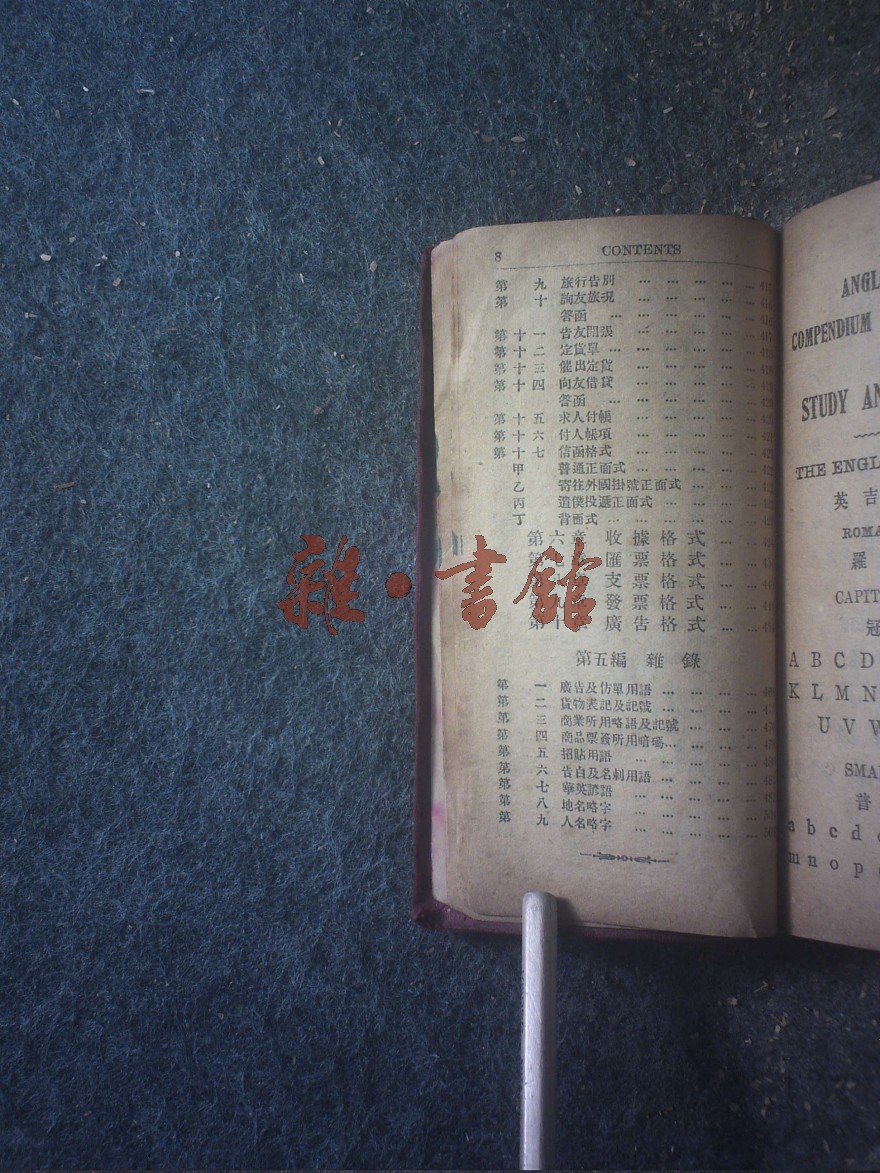 8 CONTENTS
第 九 旅行告別 … … … … …
第 十 詢友旅況 … … … … …
答函 … … … … … …
第十一 告友開張 … … … … …
第十二 定貨單 … … … … … …
第十三 催出定貨 … … … … …
第十四 向友借貸 … … … … …
答函 … … … … … …
第十五 求人付帳 … … … … …
第十六 付人帳項 … … … … …
第十七 信函格式 … … … … …
甲 普通正面式 … … … … …
乙 寄往外國掛號正面式 … … …
丙 遣僕投遞正面式 … … … …
丁 背面式 … … … … … …
第六章 收據格式 … …
匯票格式 … …
支票格式 … …
發票格式 … …
廣告格式 … …
第五編 雜錄
第 一 廣告及仿單用語 … … … …
第 二 貨物表記及記號 … … … …
第 三 商業所用略語及記號 … … …
第 四 商品票簽所用暗碼 … … … …
第 五 招貼用語 … … … … …
第 六 告白及名刺用語 … … … …
第 七 華英諺語 … … … … …
第 八 地名略字 … … … … …
第 九 人名略字 … … … … …
雜·書館
ANGL
COMPENDIUM
STUDY AN
THE ENGL
英 吉
ROMA
羅
CAPIT
冠
A B C D
K L M N
U V W
SMA
普
a b c d
m n o p